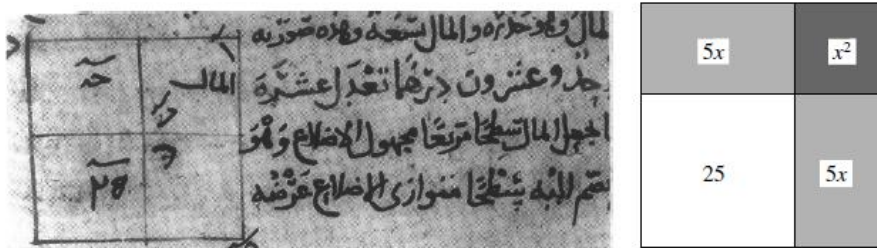 المال وهو جذره والمال تسعة وهذه صورته
وعشرون درهما تعدل عشرة
المال سطحا مربعا مجهول الاضلاع وهو
اليه سطحا متوازى الاضلاع عرضه
المال
5x
x²
25
5x